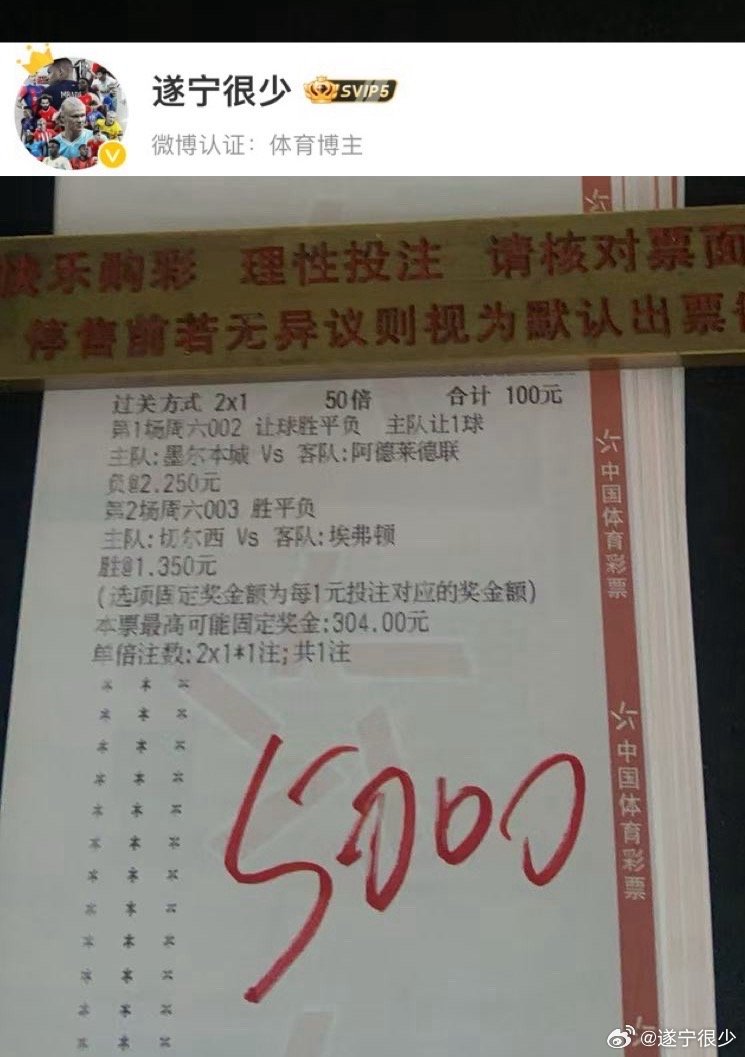 遂宁很少
SVIP5
微博认证：体育博主
快乐购彩 理性投注 请核对票面
停售前若无异议则视为默认出票
过关方式 2x1 50倍 合计 100元
第1场周六002 让球胜平负 主队让1球
主队:墨尔本城 Vs 客队:阿德莱德联
负@2.250元
第2场周六003 胜平负
主队:切尔西 Vs 客队:埃弗顿
胜@1.350元
(选项固定奖金额为每1元投注对应的奖金额)
本票最高可能固定奖金:304.00元
单倍注数:2x1*1注;共1注
5000
中国体育彩票
中国体育彩票
@遂宁很少